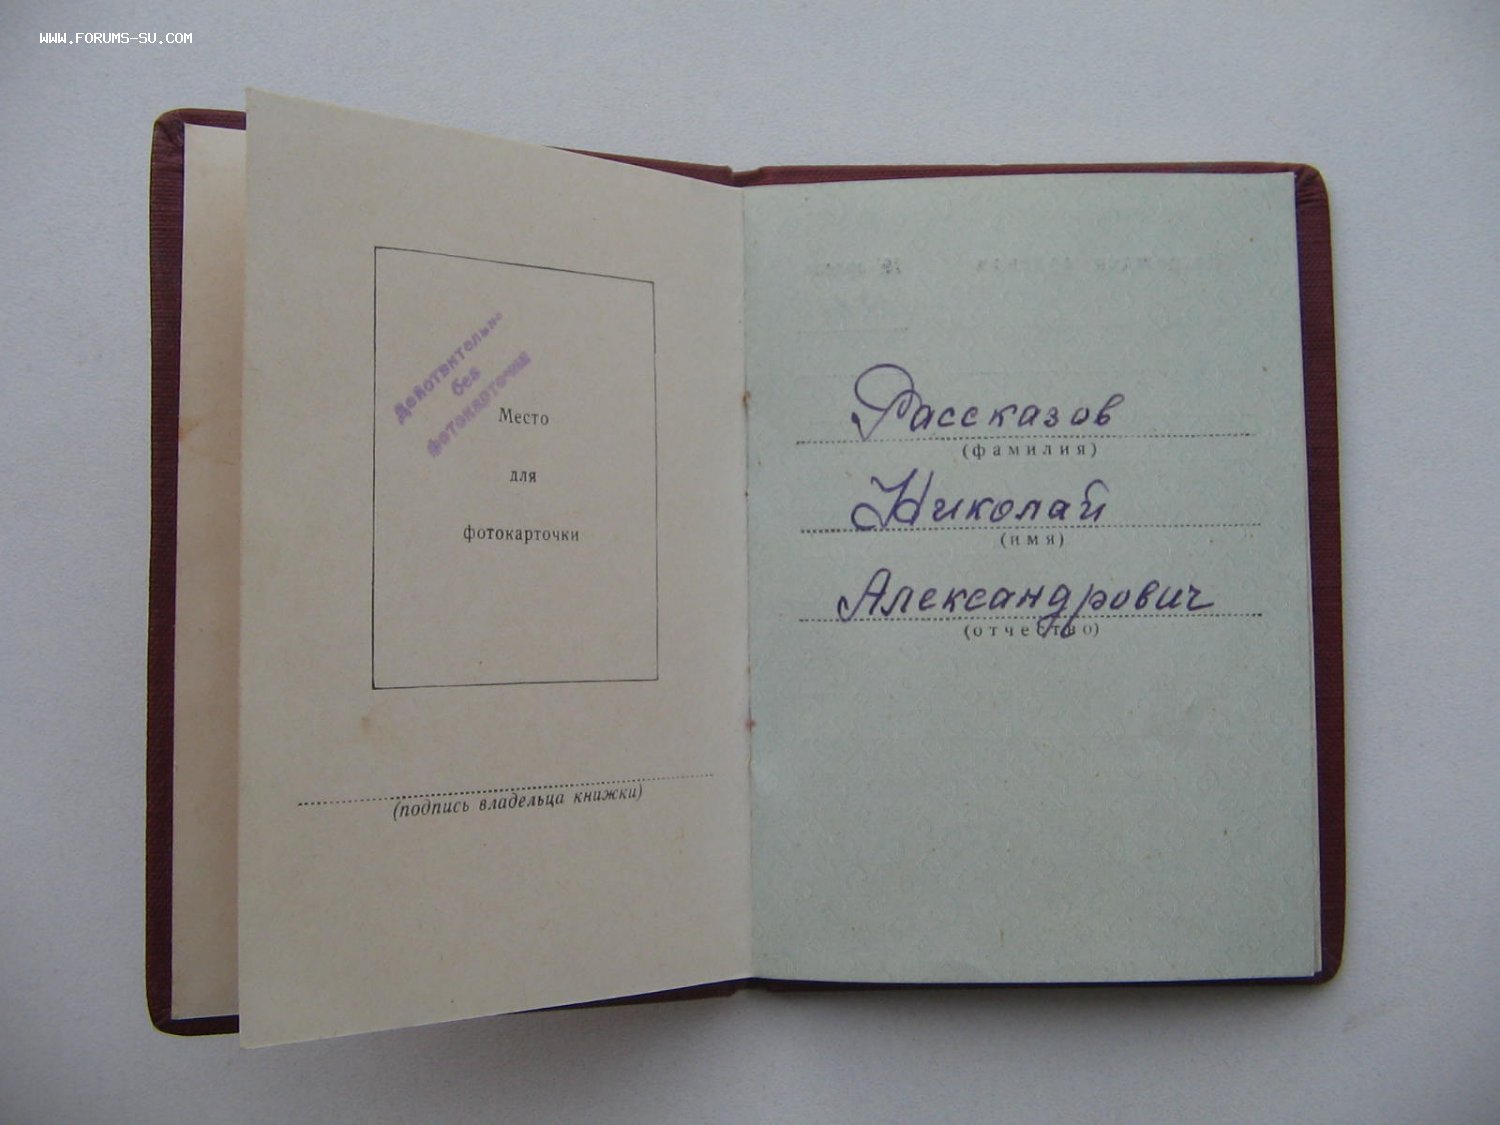 WWW.FORUMS-SU.COM
Действительно
без
фотокарточки
Место
для
фотокарточки
(подпись владельца книжки)
Рассказов
(фамилия)
Николай
(имя)
Александрович
(отчество)